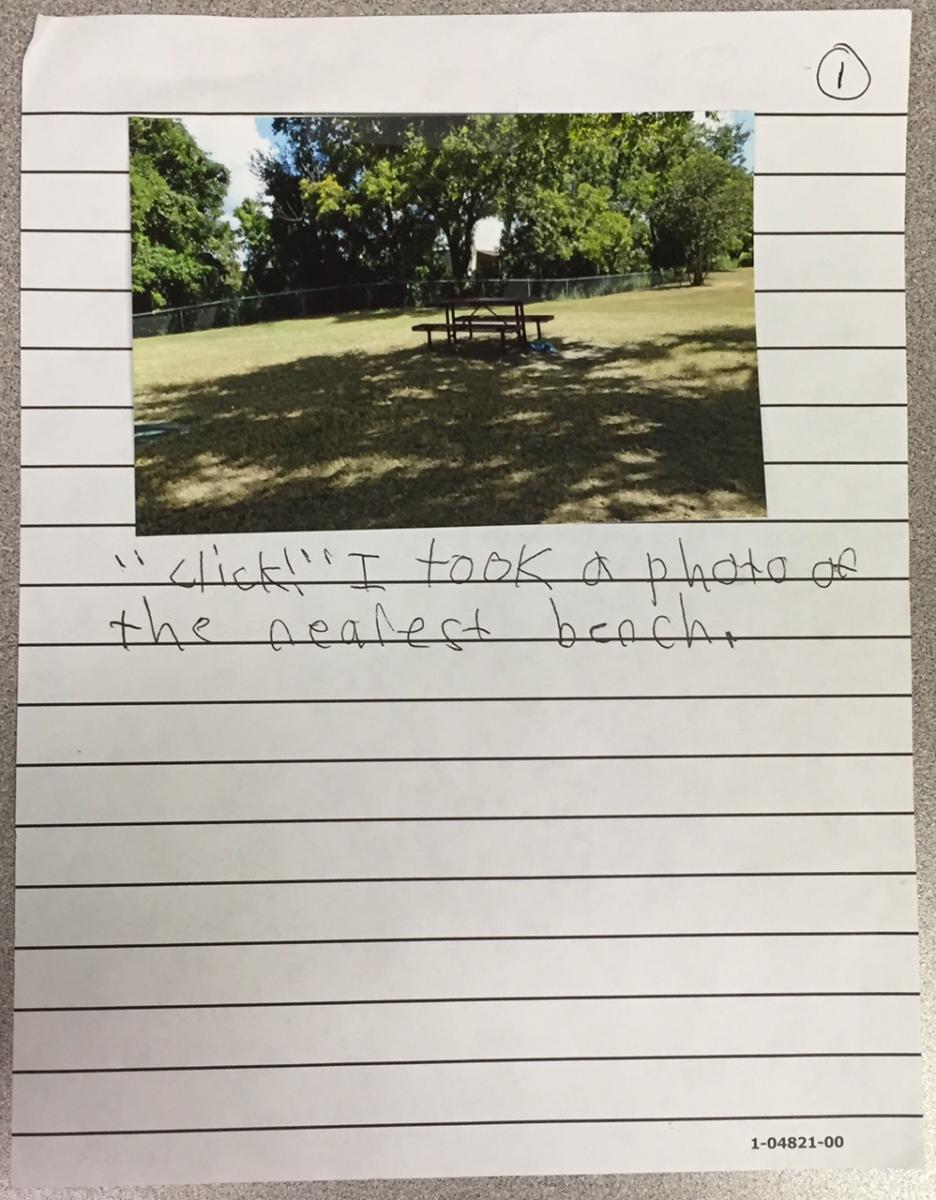 1
"click!" I took a photo of
the nearest bench.
1-04821-00